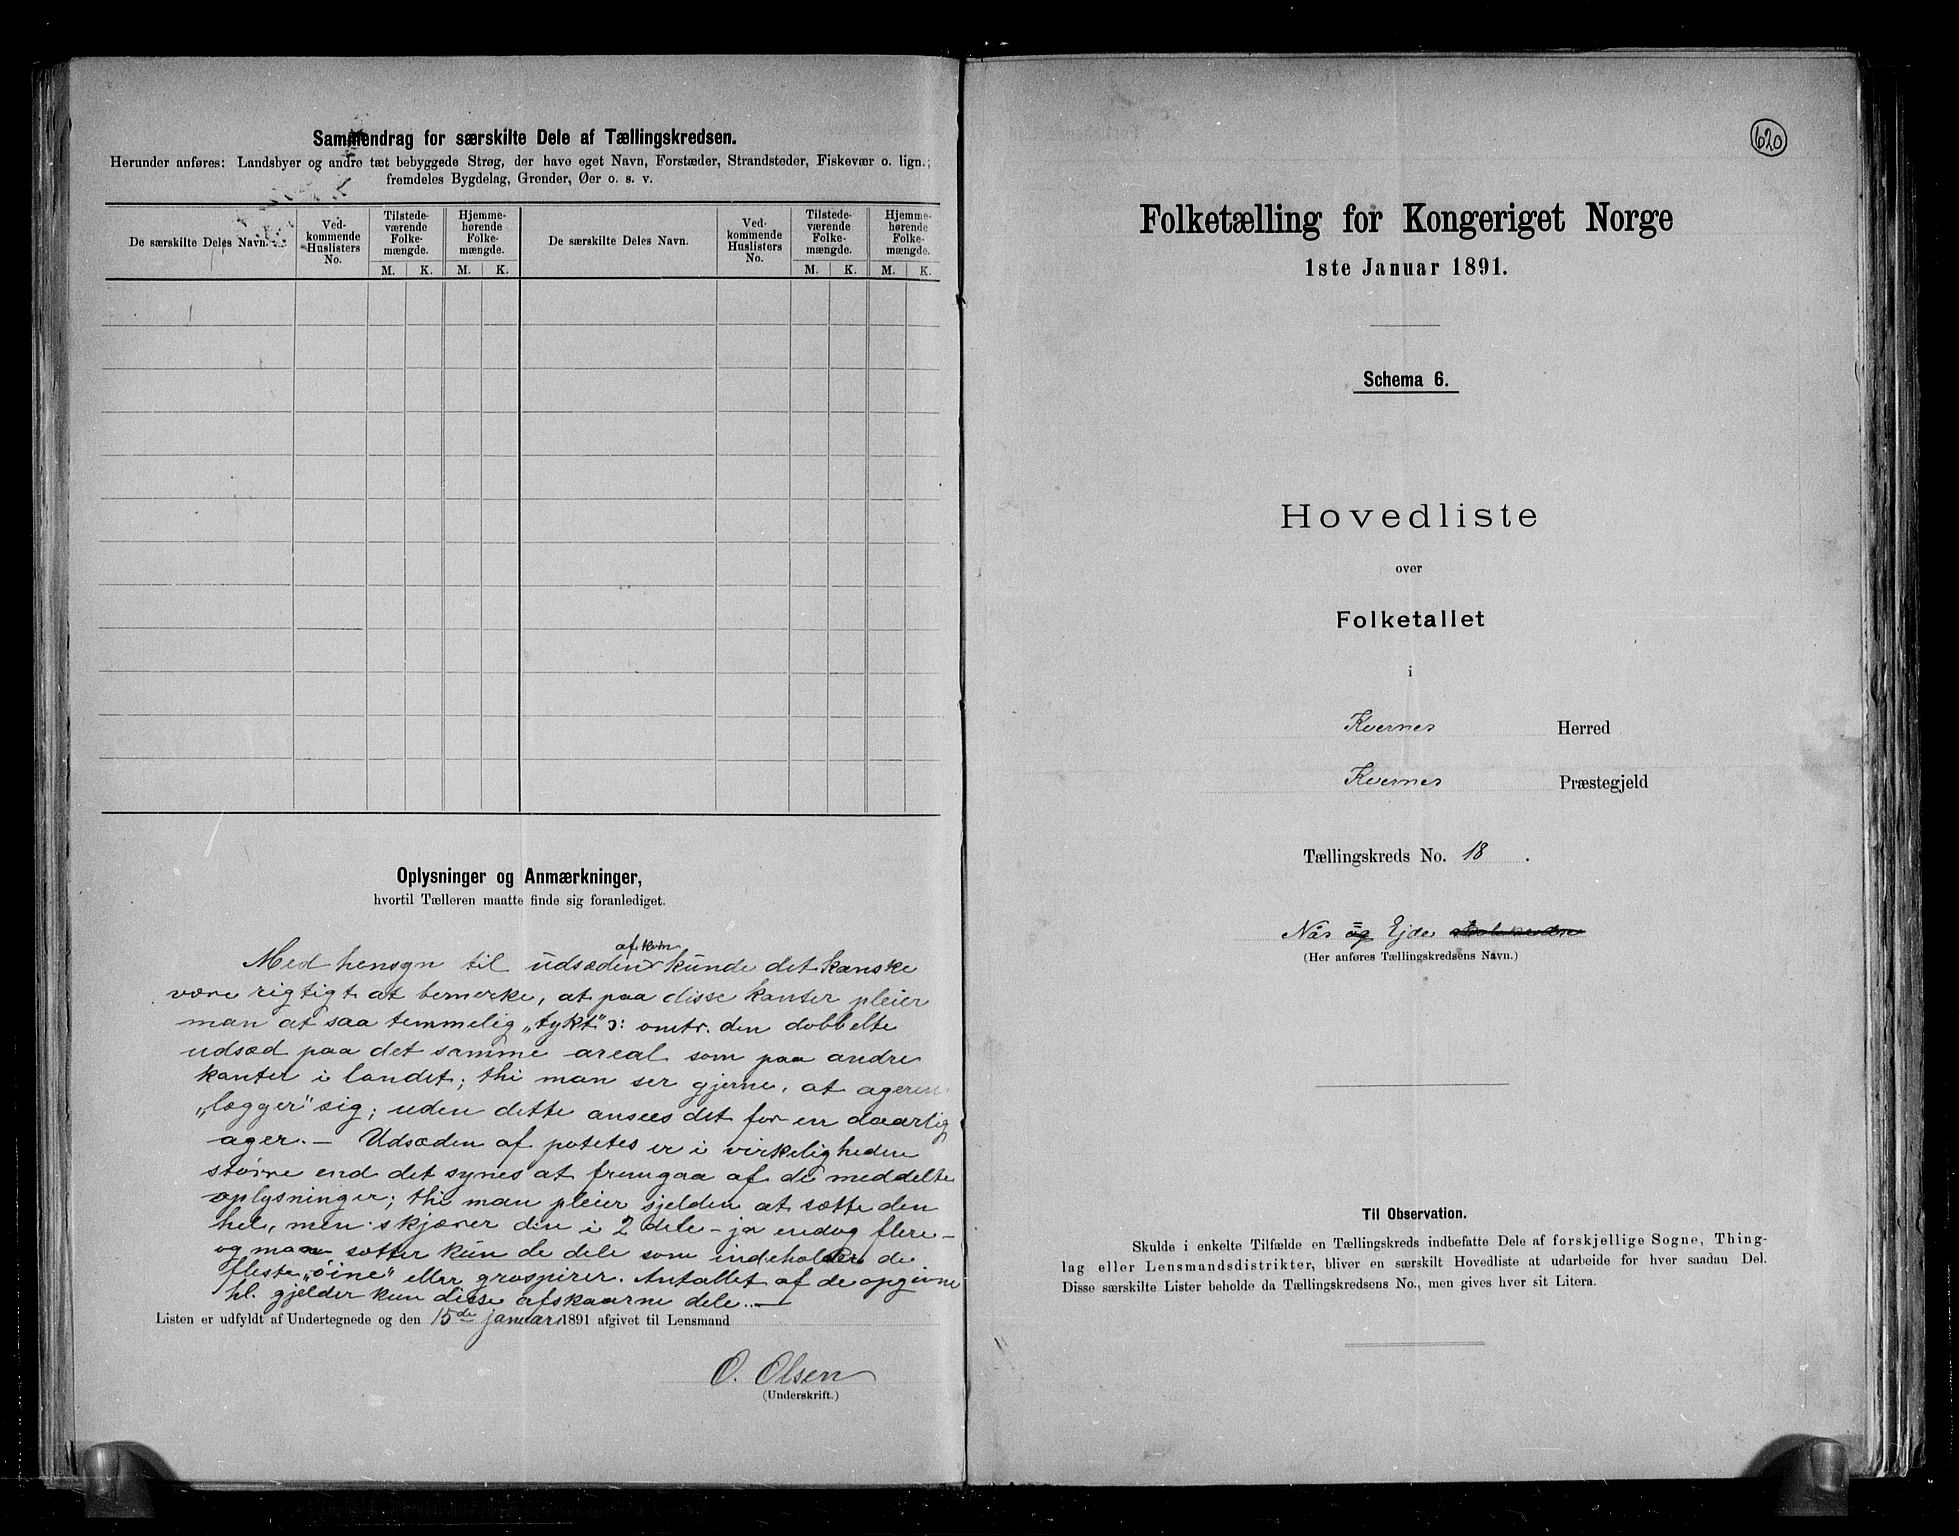 Sammendrag for særskilte Dele af Tællingskredsen.
Herunder anføres: Landsbyer og andre tæt bebyggede Strøg, der have eget Navn, Forstæder, Strandsteder, Fiskevær o. lign.;
fremdeles Bygdelag, Grender, Øer o. s. v.
De særskilte Deles Navn.
Ved-
kommende
Huslisters
No.
Tilstede-
værende
Folke-
mængde.
Hjemme-
hørende
Folke-
mængde.
M. K. M. K.
De særskilte Deles Navn.
Ved-
kommende
Huslisters
No.
Tilstede-
værende
Folke-
mængde.
Hjemme-
hørende
Folke-
mængde.
M. K. M. K.
Oplysninger og Anmærkninger,
hvortil Tælleren maatte finde sig foranlediget.
af korn
Med hensyn til udsæden kunde det kanske
være rigtigt at bemerke, at paa disse kanter pleier
man at saa temmelig „tykt“ ɔ: omtr. den dobbelte
udsæd paa det samme areal som paa andre
kanter i landet; thi man ser gjerne, at ageren
„lægger“ sig; uden dette ansees det for en daarlig
ager. — Udsæden af potetes er i virkeligheden
større end det synes at fremgaa af de meddelte
oplysninger; thi man pleier sjelden at sætte den
hel, men skjærer din i 2 dele – ja endog flere –
og man sætter kun de dele som indeholder de
fleste „øine“ eller grospirer. Antallet af de opgivne
hl. gjelder kun disse afskaarne dele. —
Listen er udfyldt af Undertegnede og den 15de januar 1891 afgivet til Lensmand
O. Olsen
(Underskrift.)
620
Folketælling for Kongeriget Norge
1ste Januar 1891.
Schema 6.
Hovedliste
over
Folketallet
i
Kvernes Herred
Kvernes Præstegjeld
Tællingskreds No. 18.
Nås og Ejde
(Her anføres Tællingskredsens Navn.)
Til Observation.
Skulde i enkelte Tilfælde en Tællingskreds indbefatte Dele af forskjellige Sogne, Thing-
lag eller Lensmandsdistrikter, bliver en særskilt Hovedliste at udarbeide for hver saadan Del.
Disse særskilte Lister beholde da Tællingskredsens No., men gives hver sit Litera.